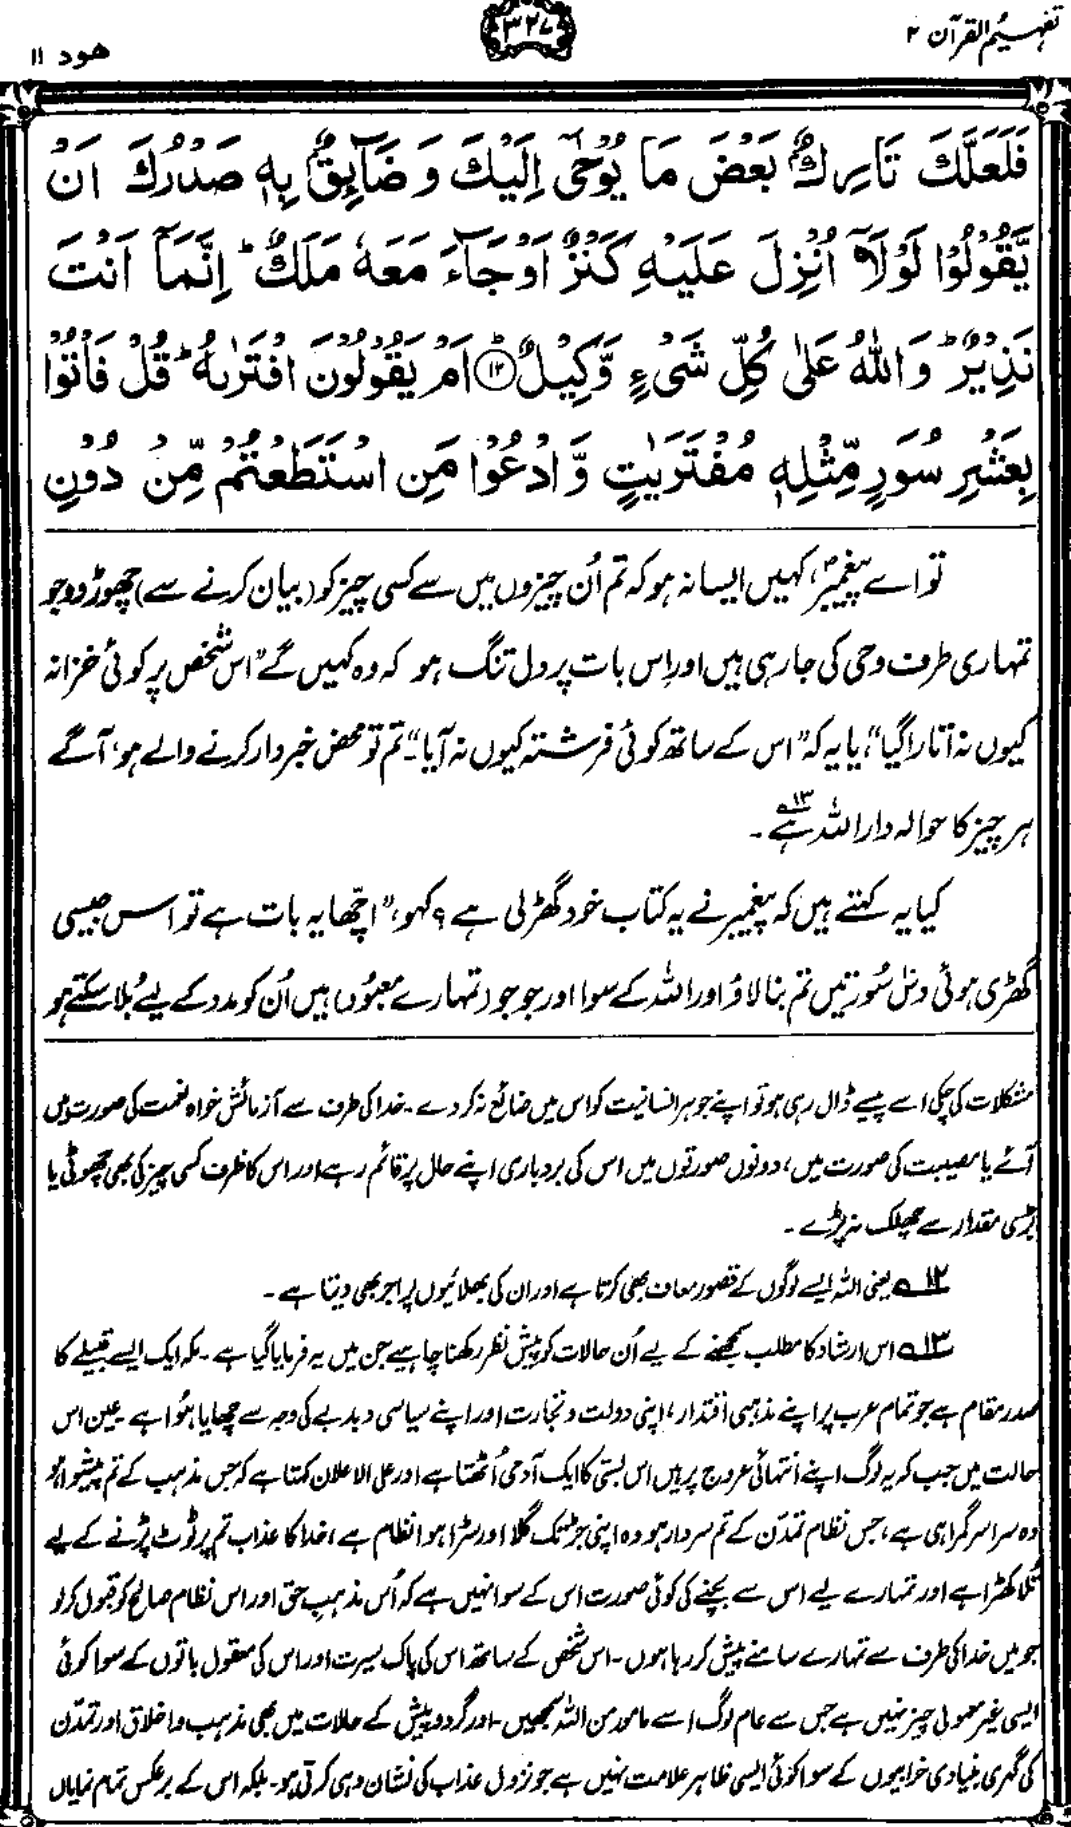 تفہیم القرآن ۲
۳۲۷
هود ۱۱
فَلَعَلَّكَ تَارِكٌۢ بَعْضَ مَا يُوْحٰٓى اِلَيْكَ وَ ضَآئِقٌۢ بِهٖ صَدْرُكَ اَنْ
يَّقُوْلُوْا لَوْ لَاۤ اُنْزِلَ عَلَيْهِ كَنْزٌ اَوْ جَآءَ مَعَهٗ مَلَكٌ ؕ اِنَّمَاۤ اَنْتَ
نَذِيْرٌ ؕ وَ اللّٰهُ عَلٰى كُلِّ شَيْءٍ وَّكِيْلٌ ؕ۝۱۲ اَمْ يَقُوْلُوْنَ افْتَرٰىهُ ؕ قُلْ فَاْتُوْا
بِعَشْرِ سُوَرٍ مِّثْلِهٖ مُفْتَرَيٰتٍ وَّ ادْعُوْا مَنِ اسْتَطَعْتُمْ مِّنْ دُوْنِ
تو اے پیغمبرؐ، کہیں ایسا نہ ہو کہ تم اُن چیزوں میں سے کسی چیز کو (بیان کرنے سے) چھوڑ دو جو
تمہاری طرف وحی کی جا رہی ہیں اور اِس بات پر دل تنگ ہو کہ وہ کہیں گے ”اس شخص پر کوئی خزانہ
کیوں نہ اتارا گیا“، یا یہ کہ ”اس کے ساتھ کوئی فرشتہ کیوں نہ آیا“۔ تم تو محض خبردار کرنے والے ہو، آگے
ہر چیز کا حوالہ دار اللہ ہے۱۳؎۔
کیا یہ کہتے ہیں کہ پیغمبر نے یہ کتاب خود گھڑلی ہے؟ کہو، ”اچّھا یہ بات ہے تو اس جیسی
گھڑی ہوئی دس سُورتیں تم بنا لاؤ اور اللہ کے سوا اور جو جو تمہارے معبُود ہیں اُن کو مدد کے لیے بُلا سکتے ہو
مشکلات کی چکی اسے پیسے ڈال رہی ہو تو اپنے جوہر انسانیت کو اس میں ضائع نہ کر دے۔ خدا کی طرف سے آزمائش خواہ نعمت کی صورت میں
آئے یا مصیبت کی صورت میں، دونوں صورتوں میں اس کی بردباری اپنے حال پر قائم رہے اور اس کا ظرف کسی چیز کی بھی چھوٹی یا
بڑی مقدار سے چھلک نہ پڑے۔
۱۲؎ یعنی اللہ ایسے لوگوں کے قصور معاف بھی کرتا ہے اور ان کی بھلائیوں پر اجر بھی دیتا ہے۔
۱۳؎ اس ارشاد کا مطلب سمجھنے کے لیے اُن حالات کو پیش نظر رکھنا چاہیے جن میں یہ فرمایا گیا ہے۔ مکہ ایک ایسے قبیلے کا
صدر مقام ہے جو تمام عرب پر اپنے مذہبی اقتدار، اپنی دولت و تجارت اور اپنے سیاسی دبدبے کی وجہ سے چھایا ہُوا ہے۔ عین اس
حالت میں جب کہ یہ لوگ اپنے انتہائی عروج پر ہیں اس بستی کا ایک آدمی اُٹھتا ہے اور علی الاعلان کہتا ہے کہ جس مذہب کے تم پیشوا ہو
وہ سراسر گمراہی ہے، جس نظام تمدّن کے تم سردار ہو وہ اپنی جڑ تک گلا اور سڑا ہوا نظام ہے، خدا کا عذاب تم پر ٹوٹ پڑنے کے لیے
تُلا کھڑا ہے اور تمہارے لیے اس سے بچنے کی کوئی صورت اس کے سوا نہیں ہے کہ اُس مذہبِ حق اور اس نظام صالح کو قبول کر لو
جو میں خدا کی طرف سے تمہارے سامنے پیش کر رہا ہوں۔ اس شخص کے ساتھ اس کی پاک سیرت اور اس کی معقول باتوں کے سوا کوئی
ایسی غیر معمولی چیز نہیں ہے جس سے عام لوگ اسے مامور من اللہ سمجھیں۔ اور گرد و پیش کے حالات میں بھی مذہب و اخلاق اور تمدّن
کی گہری بنیادی خرابیوں کے سوا کوئی ایسی ظاہر علامت نہیں ہے جو نزول عذاب کی نشان دہی کرتی ہو۔ بلکہ اس کے برعکس تمام نمایاں